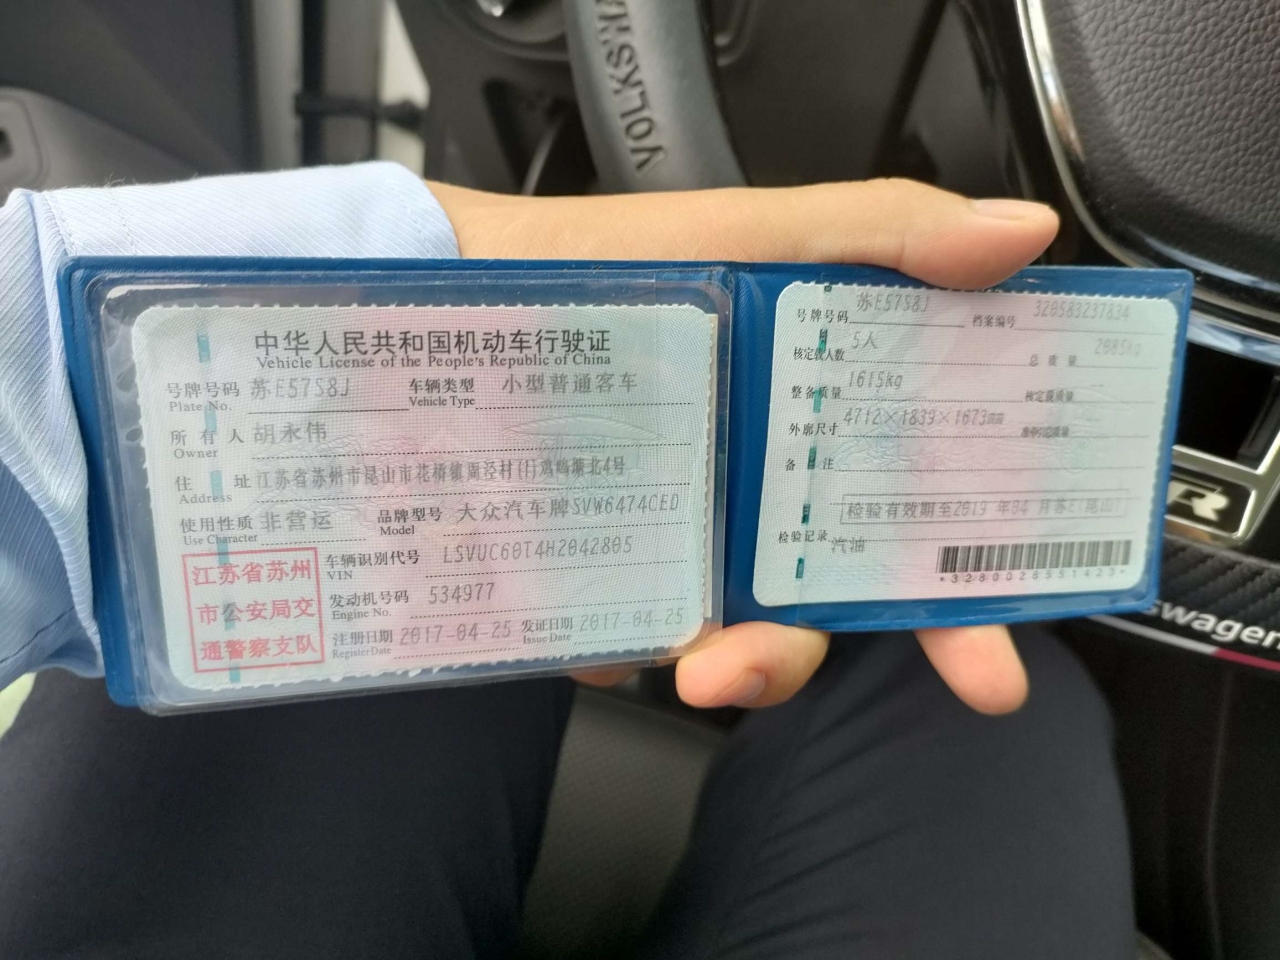 VOLKSWA
中华人民共和国机动车行驶证
Vehicle License of the People's Republic of China
号牌号码 苏E57S8J 车辆类型 小型普通客车
Plate No. Vehicle Type
所有人 胡永伟
Owner
住址 江苏省苏州市昆山市花桥镇周泾村(1)鸡鸣塘北4号
Address
使用性质 非营运 品牌型号 大众汽车牌SVW6474CED
Use Character Model
江苏省苏州
市公安局交
通警察支队
车辆识别代号 LSVUC60T4H2042805
VIN
发动机号码 534977
Engine No.
注册日期 2017-04-25 发证日期 2017-04-25
Register Date Issue Date
号牌号码 苏E57S8J 档案编号 320583237834
核定载人数 5人 总质量 2085kg
整备质量 1615kg 核定载质量
外廓尺寸 4712×1839×1673mm 准牵引总质量
备注
检验有效期至2019 年04 月苏E(昆山)
检验记录 汽油
*3280028551423*
R
swagen